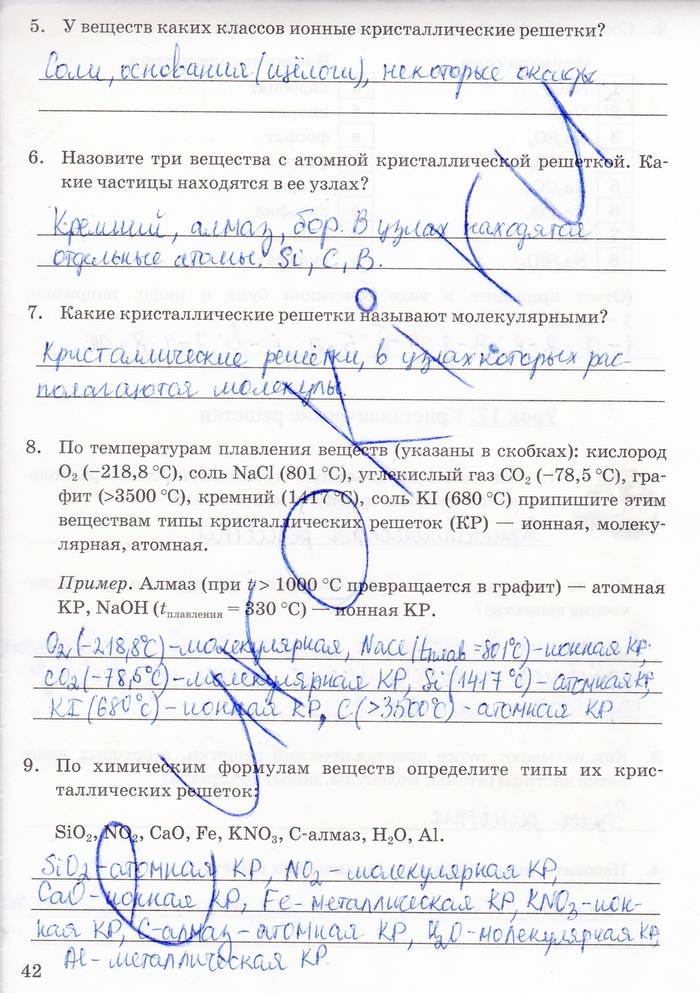 5. У веществ каких классов ионные кристаллические решетки?
Соли, основания (щёлочи), некоторые оксиды.
6. Назовите три вещества с атомной кристаллической решеткой. Ка-
кие частицы находятся в ее узлах?
Кремний, алмаз, бор. В узлах находятся
отдельные атомы: Si, C, B.
7. Какие кристаллические решетки называют молекулярными?
Кристаллические решётки, в узлах которых рас-
полагаются молекулы.
8. По температурам плавления веществ (указаны в скобках): кислород
O₂ (−218,8 °C), соль NaCl (801 °C), углекислый газ CO₂ (−78,5 °C), гра-
фит (>3500 °C), кремний (1417 °C), соль KI (680 °C) припишите этим
веществам типы кристаллических решеток (КР) — ионная, молеку-
лярная, атомная.
Пример. Алмаз (при t > 1000 °C превращается в графит) — атомная
КР, NaOH (tплавления = 330 °C) — ионная КР.
O₂ (−218,8°C) - молекулярная, NaCl (tплав -801°C) - ионная КР;
CO₂ (−78,5°C) - молекулярная КР, Si (1417°C) - атомная КР,
KI (680°C) - ионная КР, C (>3500°C) - атомная КР
9. По химическим формулам веществ определите типы их крис-
таллических решеток:
SiO₂, NO₂, CaO, Fe, KNO₃, C-алмаз, H₂O, Al.
SiO₂ - атомная КР, NO₂ - молекулярная КР,
CaO - ионная КР, Fe - металлическая КР, KNO₃ - ион-
ная КР, C-алмаз - атомная КР, H₂O - молекулярная КР,
Al - металлическая КР.
42